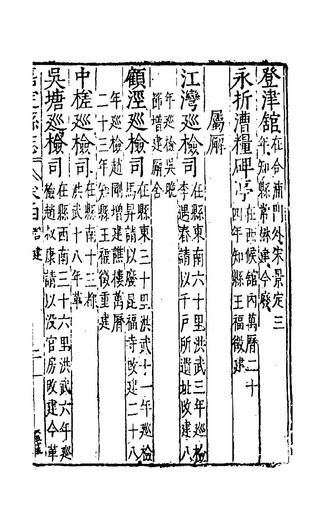 登津館在合浦門外宋景定三
年知縣常楙建今廢
永折漕糧碑亭在西候館內萬曆二十
四年知縣王福徵建
屬廨
江灣巡檢司在縣東南六十里洪武三年巡檢
李遇春請以千戶所遺址改建八
年巡檢吳
節增建廨舍
顧涇巡檢司在縣東三十里洪武十一年巡檢
馬昇請以廢昆福寺改建二十八
年巡檢趙剛增建譙樓萬曆
二十三年知縣王福徵重建
中槎巡檢司在縣南十三都
洪武十八年革
吳塘巡檢司在縣西南三十六里洪武六年巡
檢趙叔康請以沒官房改建今革
嘉定縣志 卷四